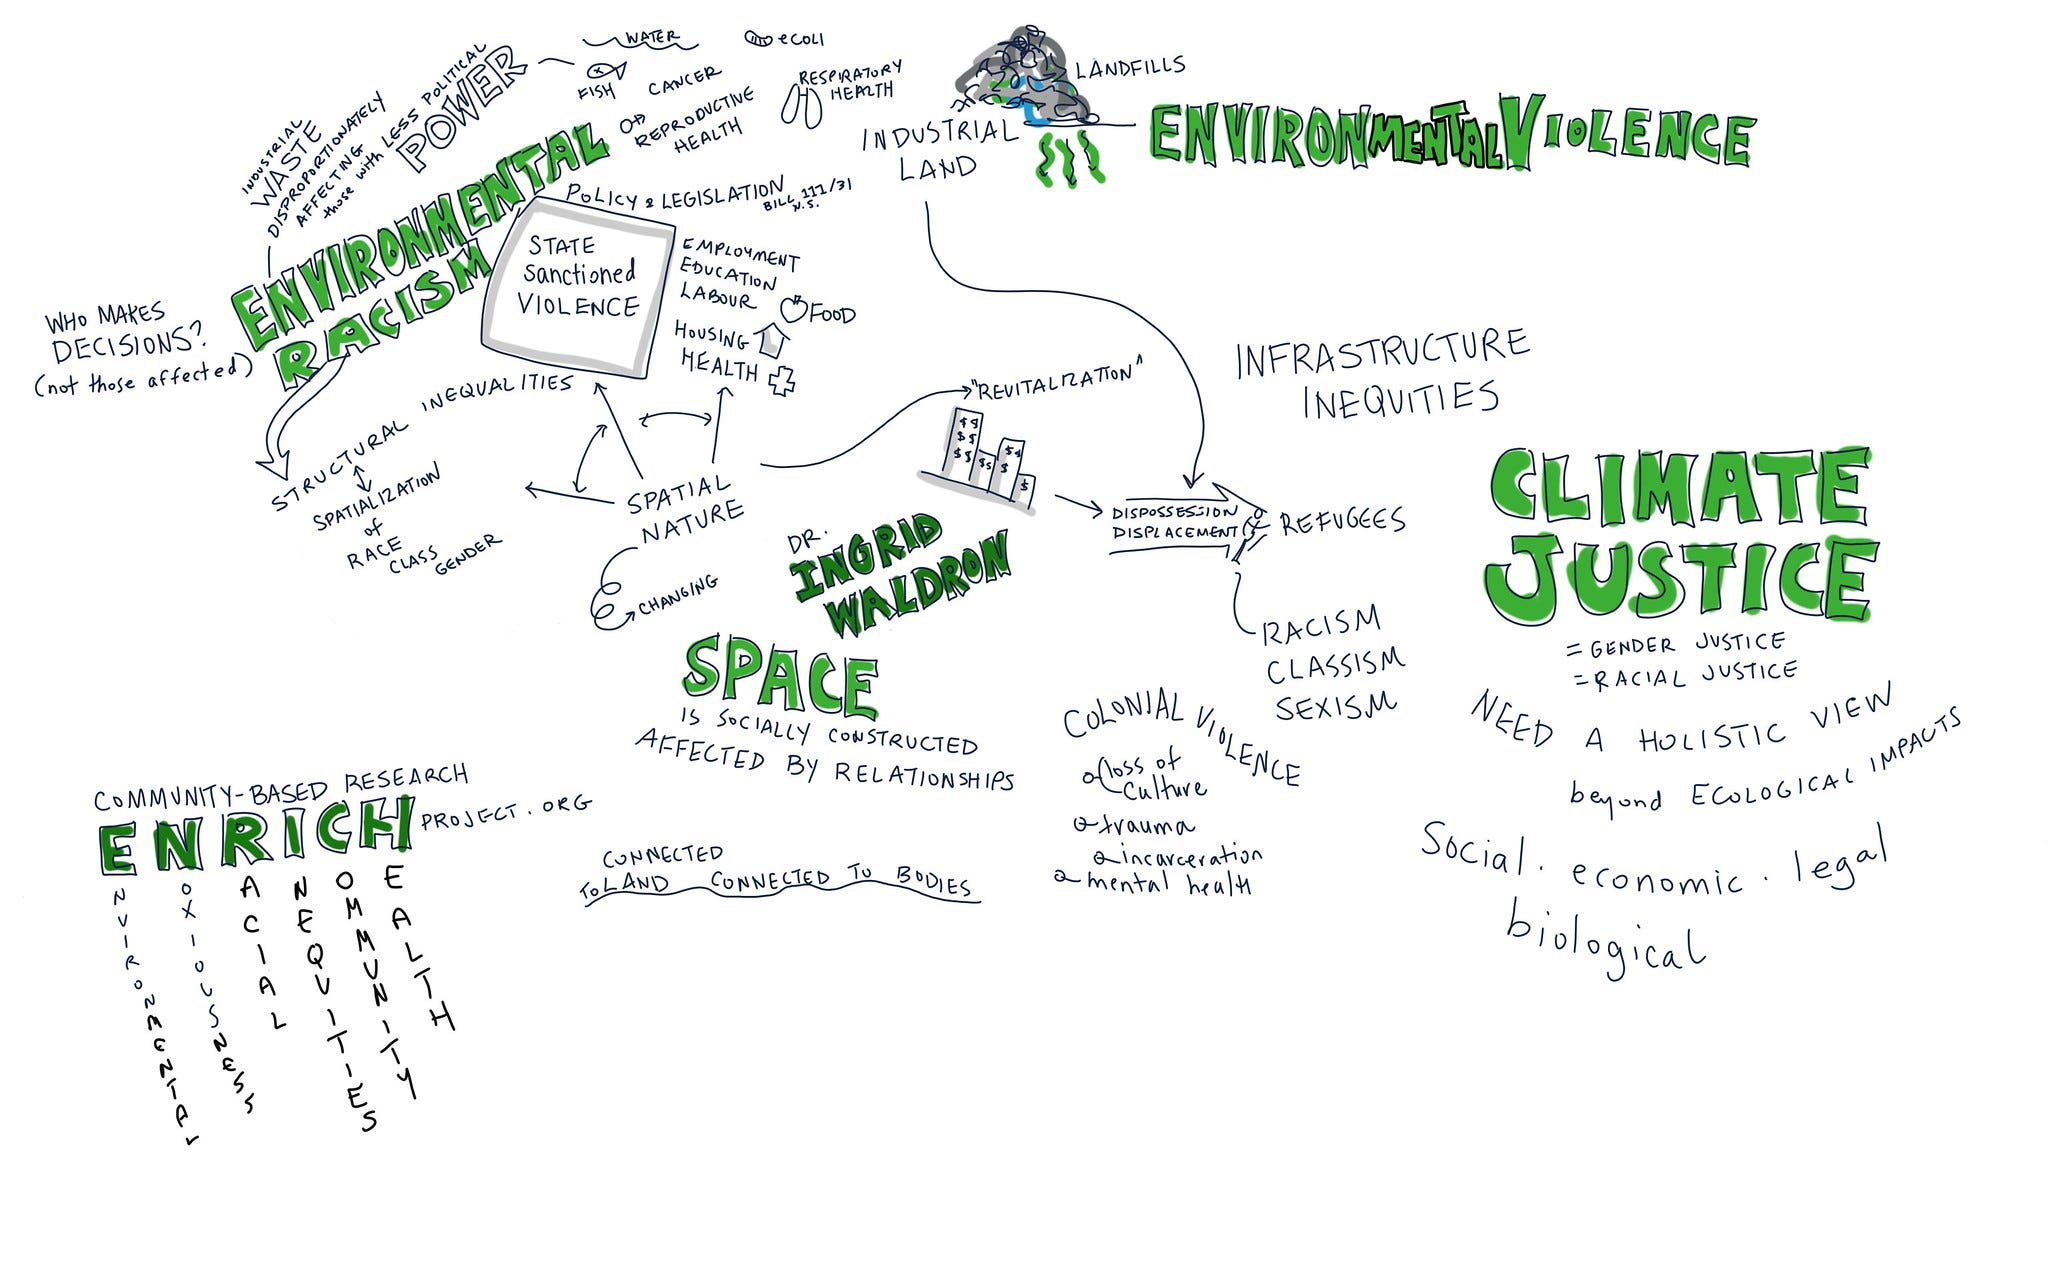 INDUSTRIAL
WASTE
DISPROPORTIONATELY
AFFECTING
those with LESS POLITICAL
POWER
WATER
FISH
ecoli
CANCER
REPRODUCTIVE
HEALTH
RESPIRATORY
HEALTH
ENVIRONMENTAL
RACISM
WHO MAKES
DECISIONS?
(not those affected)
POLICY & LEGISLATION
BILL 111/31
N.S.
STATE
Sanctioned
VIOLENCE
EMPLOYMENT
EDUCATION
LABOUR
FOOD
HOUSING
HEALTH
STRUCTURAL INEQUALITIES
SPATIALIZATION
of
RACE
CLASS
GENDER
SPATIAL
NATURE
CHANGING
INDUSTRIAL
LAND
LANDFILLS
ENVIRONMENTAL VIOLENCE
"REVITALIZATION"
$ $
$ $
$ $
$ $
$ $
$
$
DISPOSSESSION
DISPLACEMENT
REFUGEES
RACISM
CLASSISM
SEXISM
INFRASTRUCTURE
INEQUITIES
DR.
INGRID
WALDRON
SPACE
IS SOCIALLY CONSTRUCTED
AFFECTED BY RELATIONSHIPS
COLONIAL VIOLENCE
loss of
culture
trauma
incarceration
mental health
CLIMATE
JUSTICE
= GENDER JUSTICE
= RACIAL JUSTICE
NEED A HOLISTIC VIEW
beyond ECOLOGICAL IMPACTS
Social. economic. legal
biological
COMMUNITY-BASED RESEARCH
ENRICH PROJECT.ORG
ENVIRONMENTAL
NOXIOUSNESS
RACIAL
INEQUITIES
COMMUNITY
HEALTH
CONNECTED
TO LAND CONNECTED TO BODIES